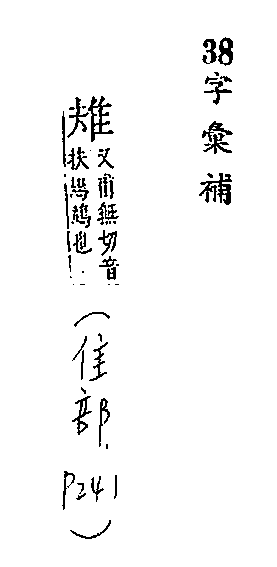 38字彙補
又甫無切音
扶也
(隹部.
P241)